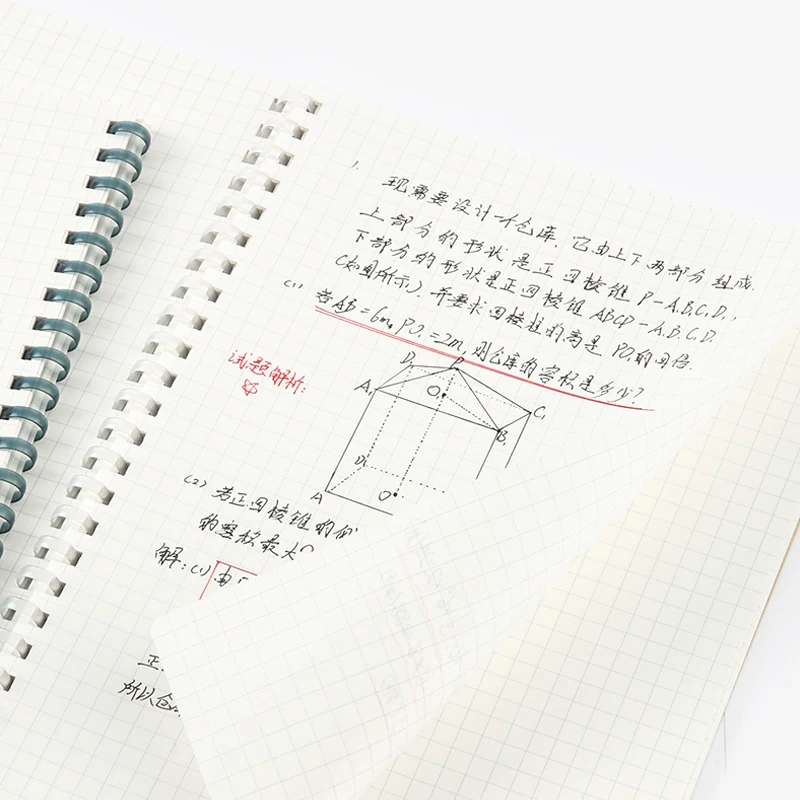 1.
现需要设计一个仓库,它由上下两部分组成.
上部分的形状是正四棱锥 P-A₁B₁C₁D₁,
下部分的形状是正四棱锥 ABCD-A₁B₁C₁D₁
(如图所示),并要求四棱柱的高是 PO₁的四倍.
(1) 若AB=6m, PO₁=2m, 则仓库的容积是多少?
试题解析:
D₁ P
A₁ O₁ C₁
B₁
D
A O
(2) 若正四棱锥的
的整
解:(1) 由
正.
所以仓